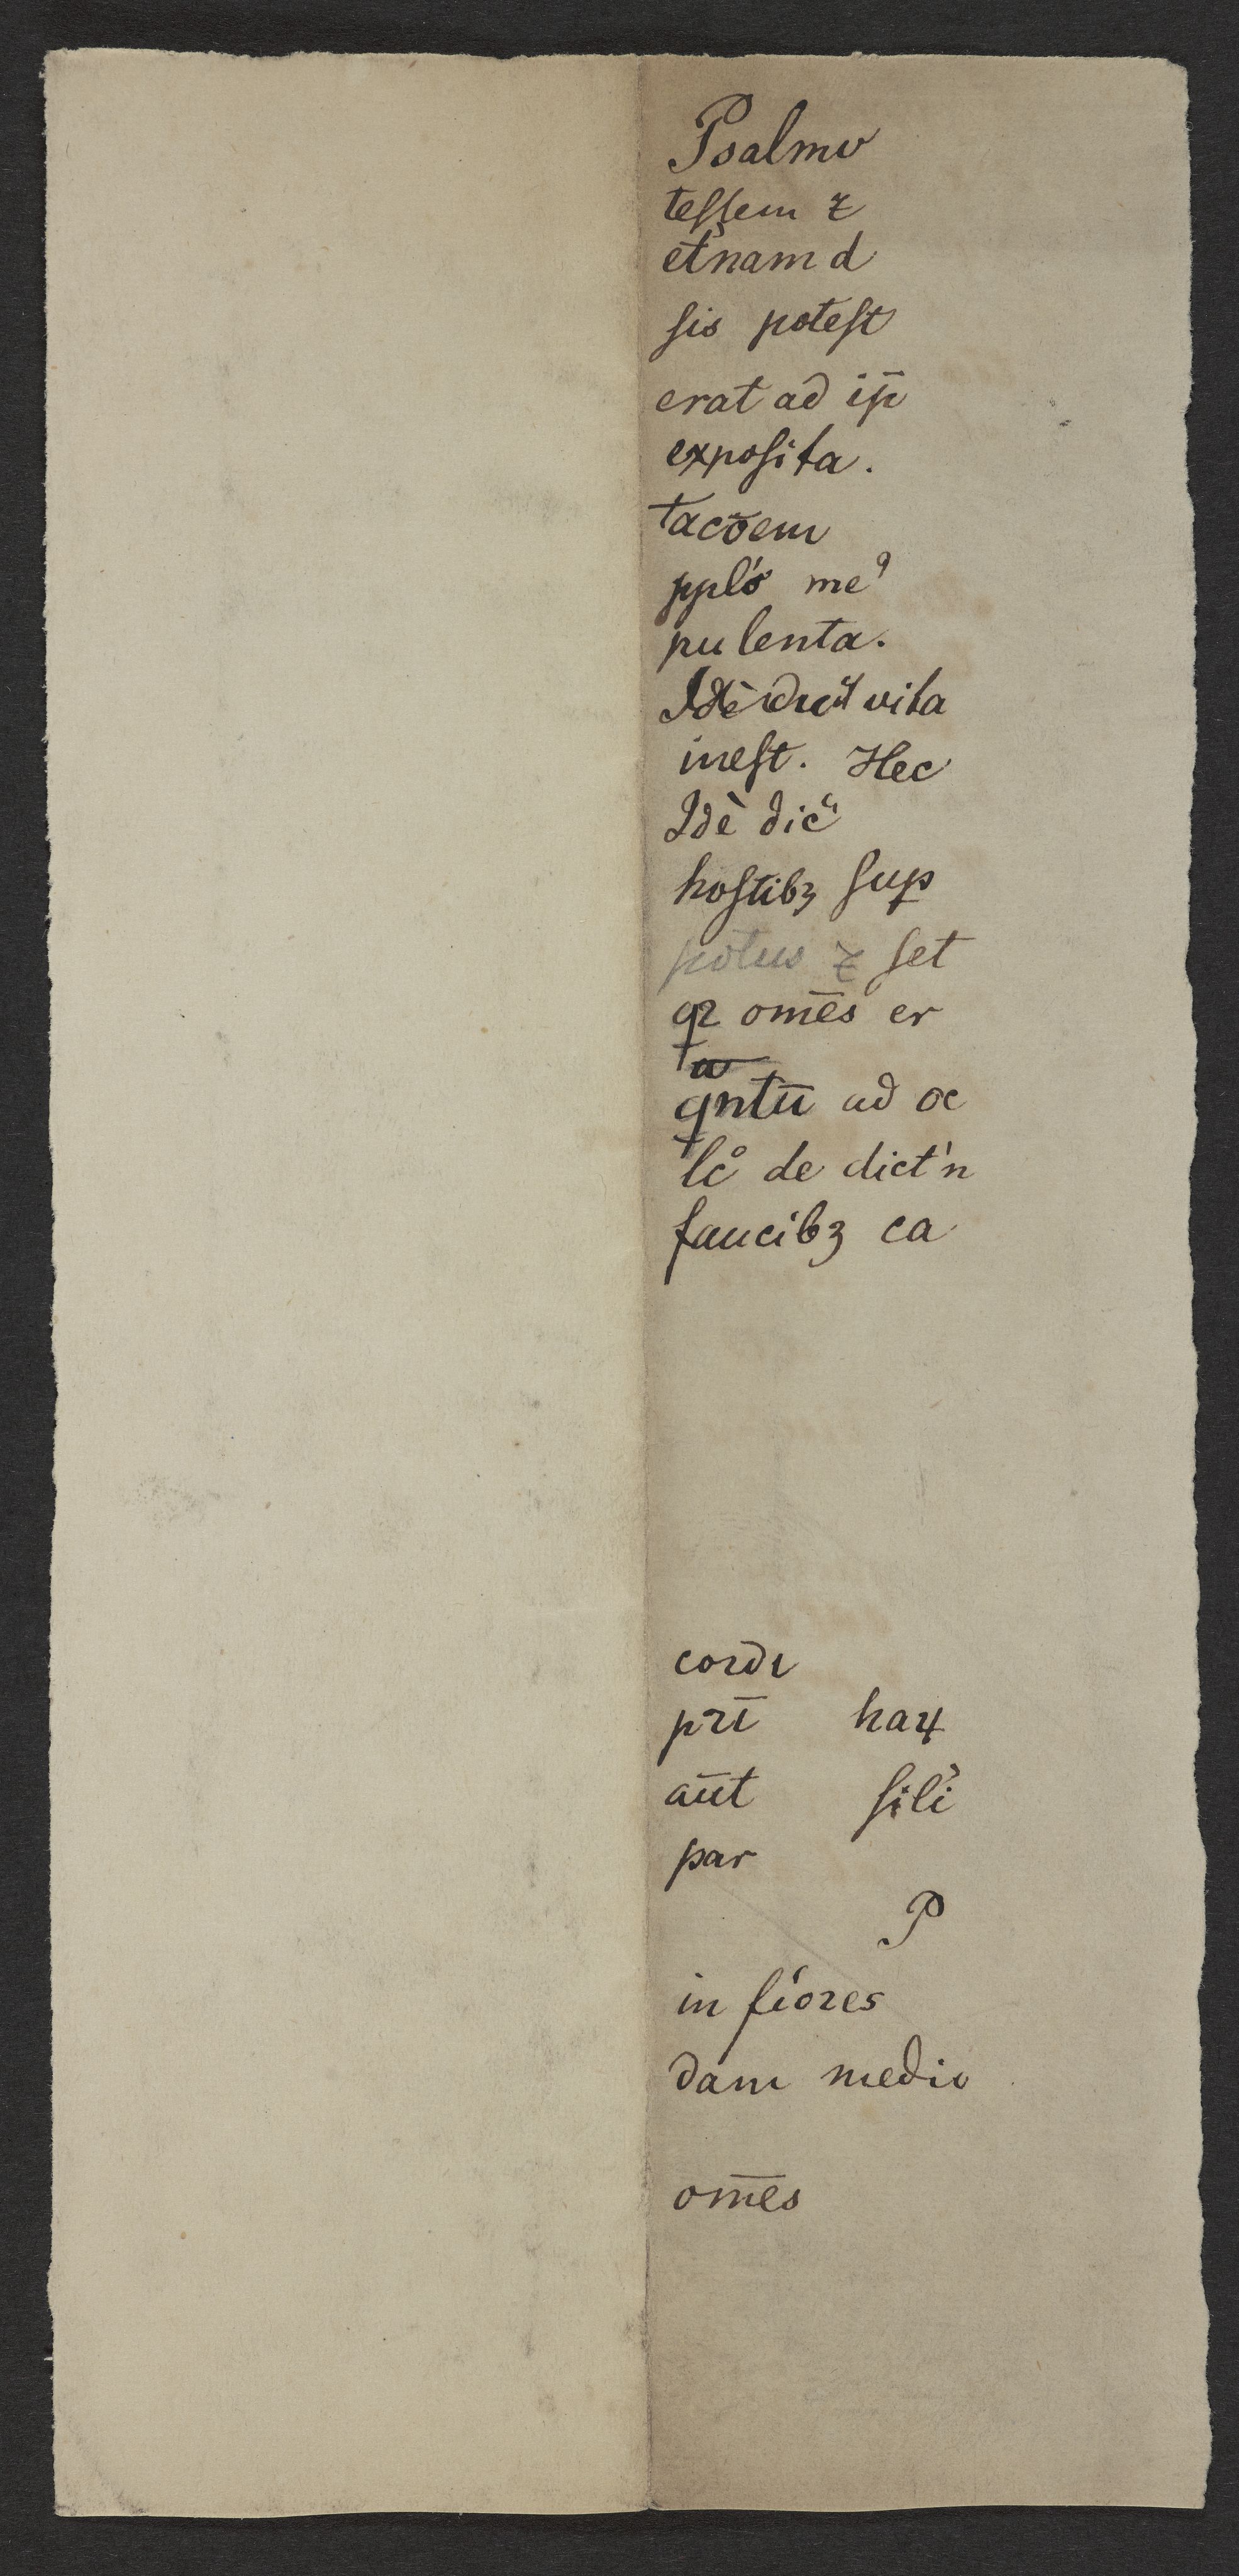 Psalmo
teſſem ⁊
et'nam d
ſis poteſt
erat ad ip̄
expoſita.
tacōem
ppl'o me⁹
pulenta.
vita
ineſt. Hec
Idē dic
hoſtibꝫ ſuꝑ
potus ⁊ ſet
qꝛ om̄es er
qntū ad oc
lc° de dict'n
faucibꝫ ca
cordi
pꝛī haꝝ
aūt ſil'i
par
P
in f'ioꝛes
dam medio
om̄es